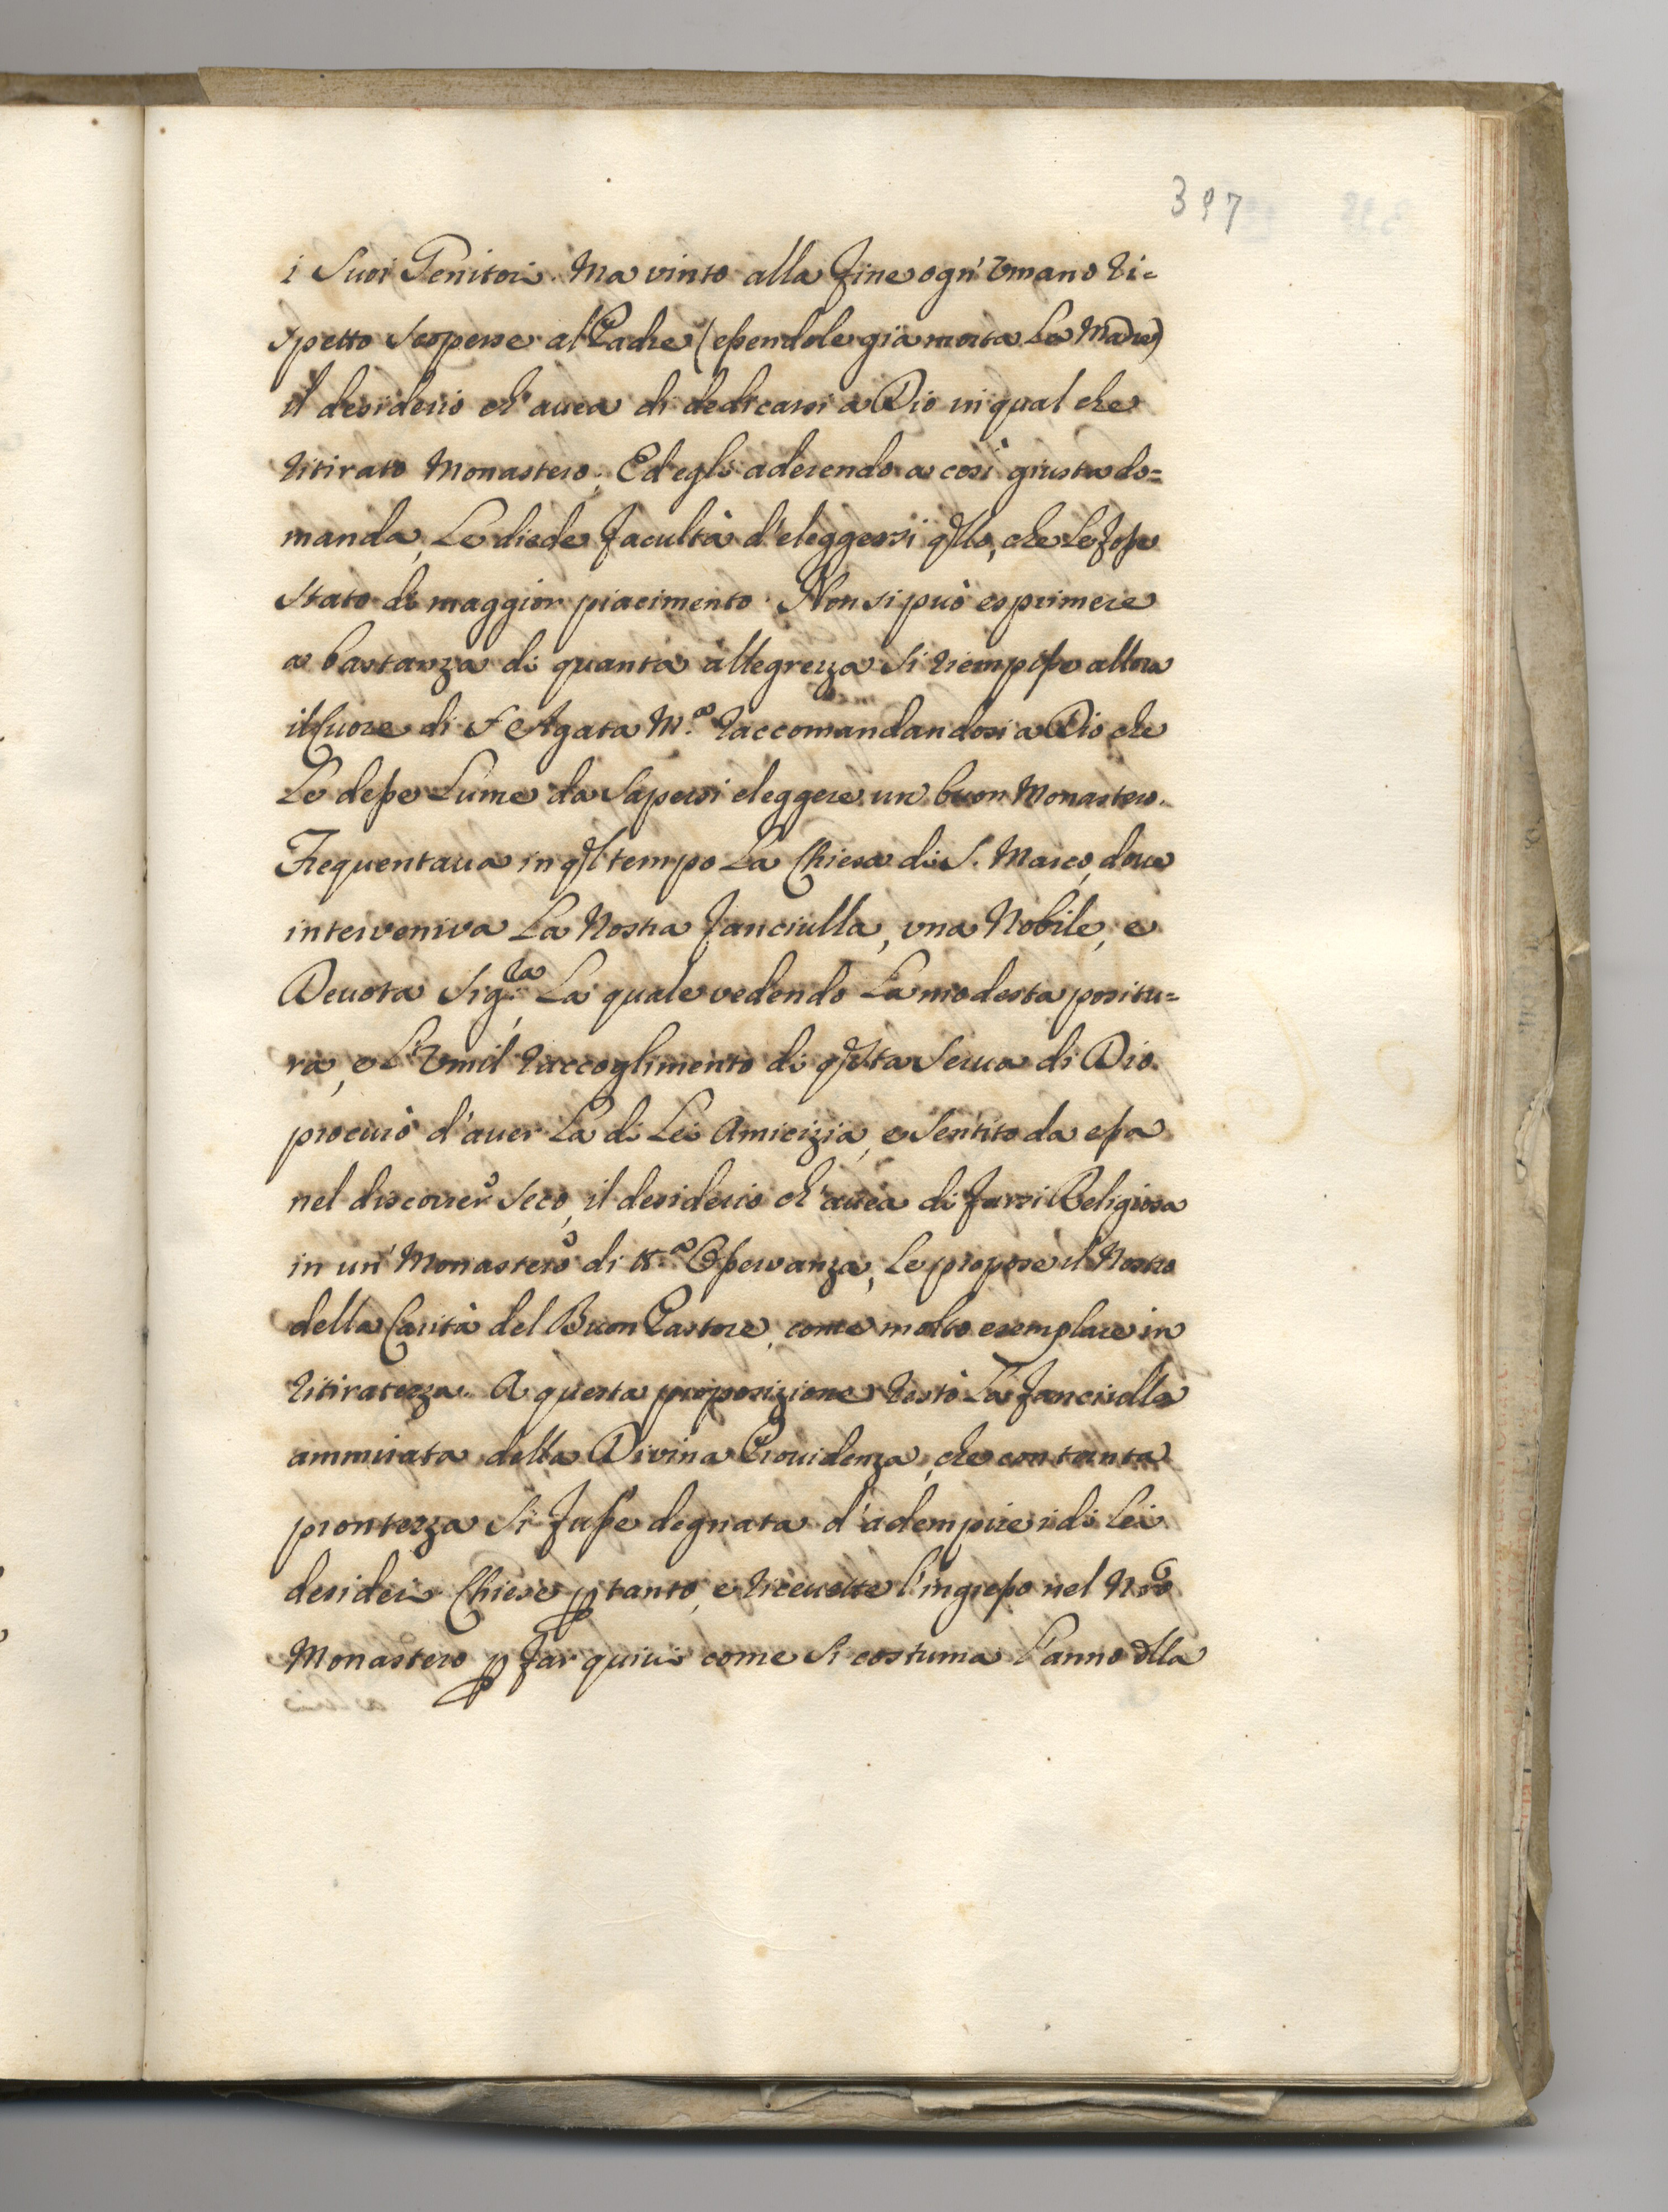 397
i Suoi Genitori. Ma vinto alla fine ogn' Vmano ri=
spetto scoperse al Padre (essendole già morta La Madre)
il desiderio ch' auea di dedicarsi a Dio in qual che
ritirato Monastero; Ed egli aderendo a così giusta do=
manda, Le diede facultà d'eleggersi qllo, che Le fosse
stato di maggior piacimento. Non si può esprimere
a bastanza di quanta allegrezza si riempisse allora
il Cuore di S. Agata Mª. raccomandandosi a Dio che
Le desse Lume da sapersi eleggere un buon Monastero.
Frequentaua in ql tempo La Chiesa di S. Marco, doue
interveniva La Nostra fanciulla, vna Nobile, e
Deuota Sig.ra La quale vedendo La modesta positu=
ra, e L'Vmil raccoglimento di qsta Serua di Dio
procurò d'auer La di Lei Amicizia, e sentito da essa
nel discorrer seco, il desiderio ch' auea di farsi Religiosa
in un' Monastero di Rª. Osservanza, Le propose il Nostro
della Carità del Buon Pastore, come molto esemplare in
ritiratezza. A questa proposizione restò La fanciulla
ammirata della Divina Prouidenza, che con tanta
prontezza si fusse degnata d'adempire i di Lei
desideri. Chiese p tanto, e riceuette l'ingresso nel Nro
Monastero p far quiui come si costuma L'anno dlla